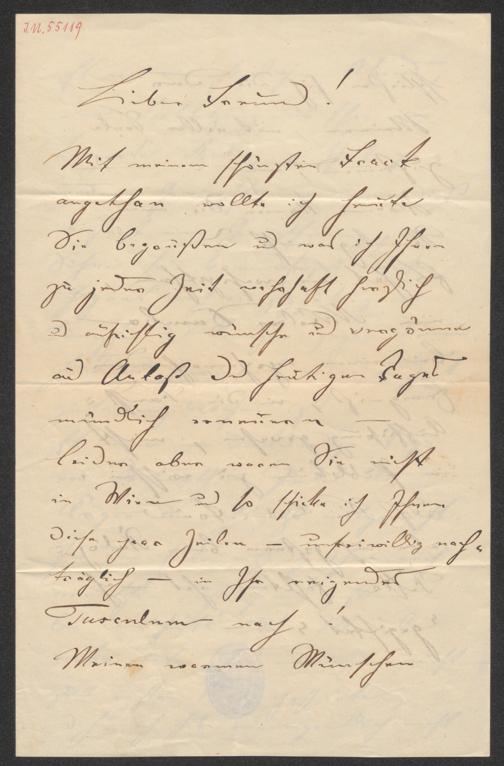 J.N. 55119
Lieber Freund!
Mit meinem schönsten Frack
angethan wollte ich heute
Sie begrüßen u was ich Ihnen
zu jeder Zeit wahrhaft herzlich
u aufrichtig wünsche u vergönne
aus Anlaß des heutigen Tages
mündlich erneuern —
leider aber waren Sie nicht
in Wien u so schicke ich Ihnen
diese paar Zeilen — unfreiwillig nach-
träglich — in Ihr reizendes
Tusculum nach!
Meinen warmen Wünschen